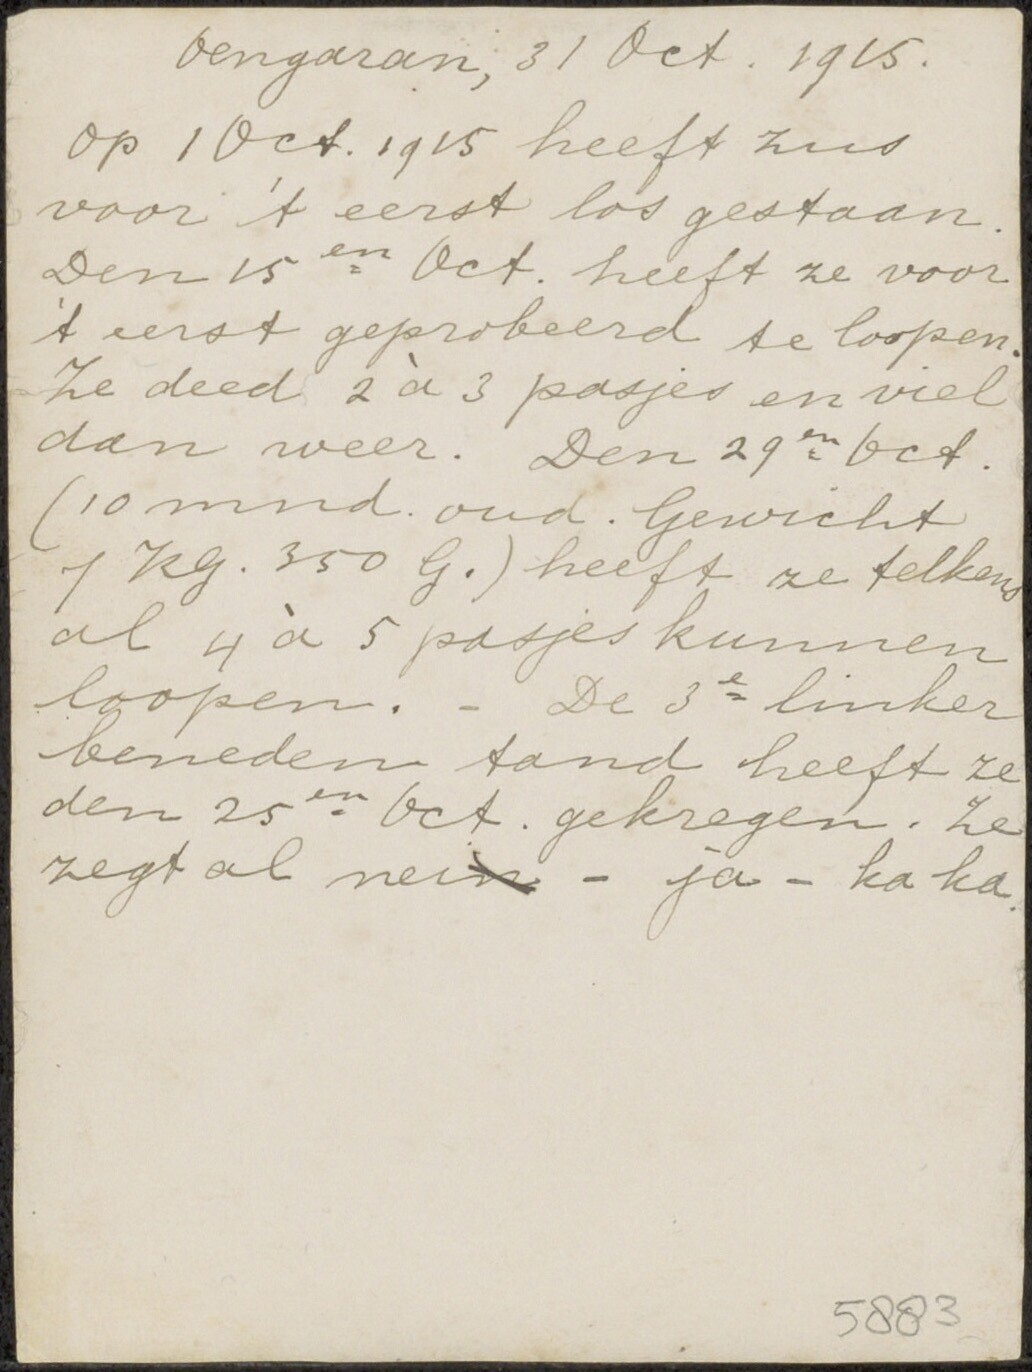 Oengaran, 31 Oct. 1915.
Op 1 Oct. 1915 heeft zus
voor 't eerst los gestaan.
Den 15en Oct. heeft ze voor
't eerst geprobeerd te loopen.
Ze deed 2 à 3 pasjes en viel
dan weer. Den 29en Oct.
(10 mnd. oud. Gewicht
7 KG. 350 G.) heeft ze telkens
al 4 à 5 pasjes kunnen
loopen. - De 3e linker
beneden tand heeft ze
den 25en Oct. gekregen. Ze
zegt al nein - ja - ka ka.
5883